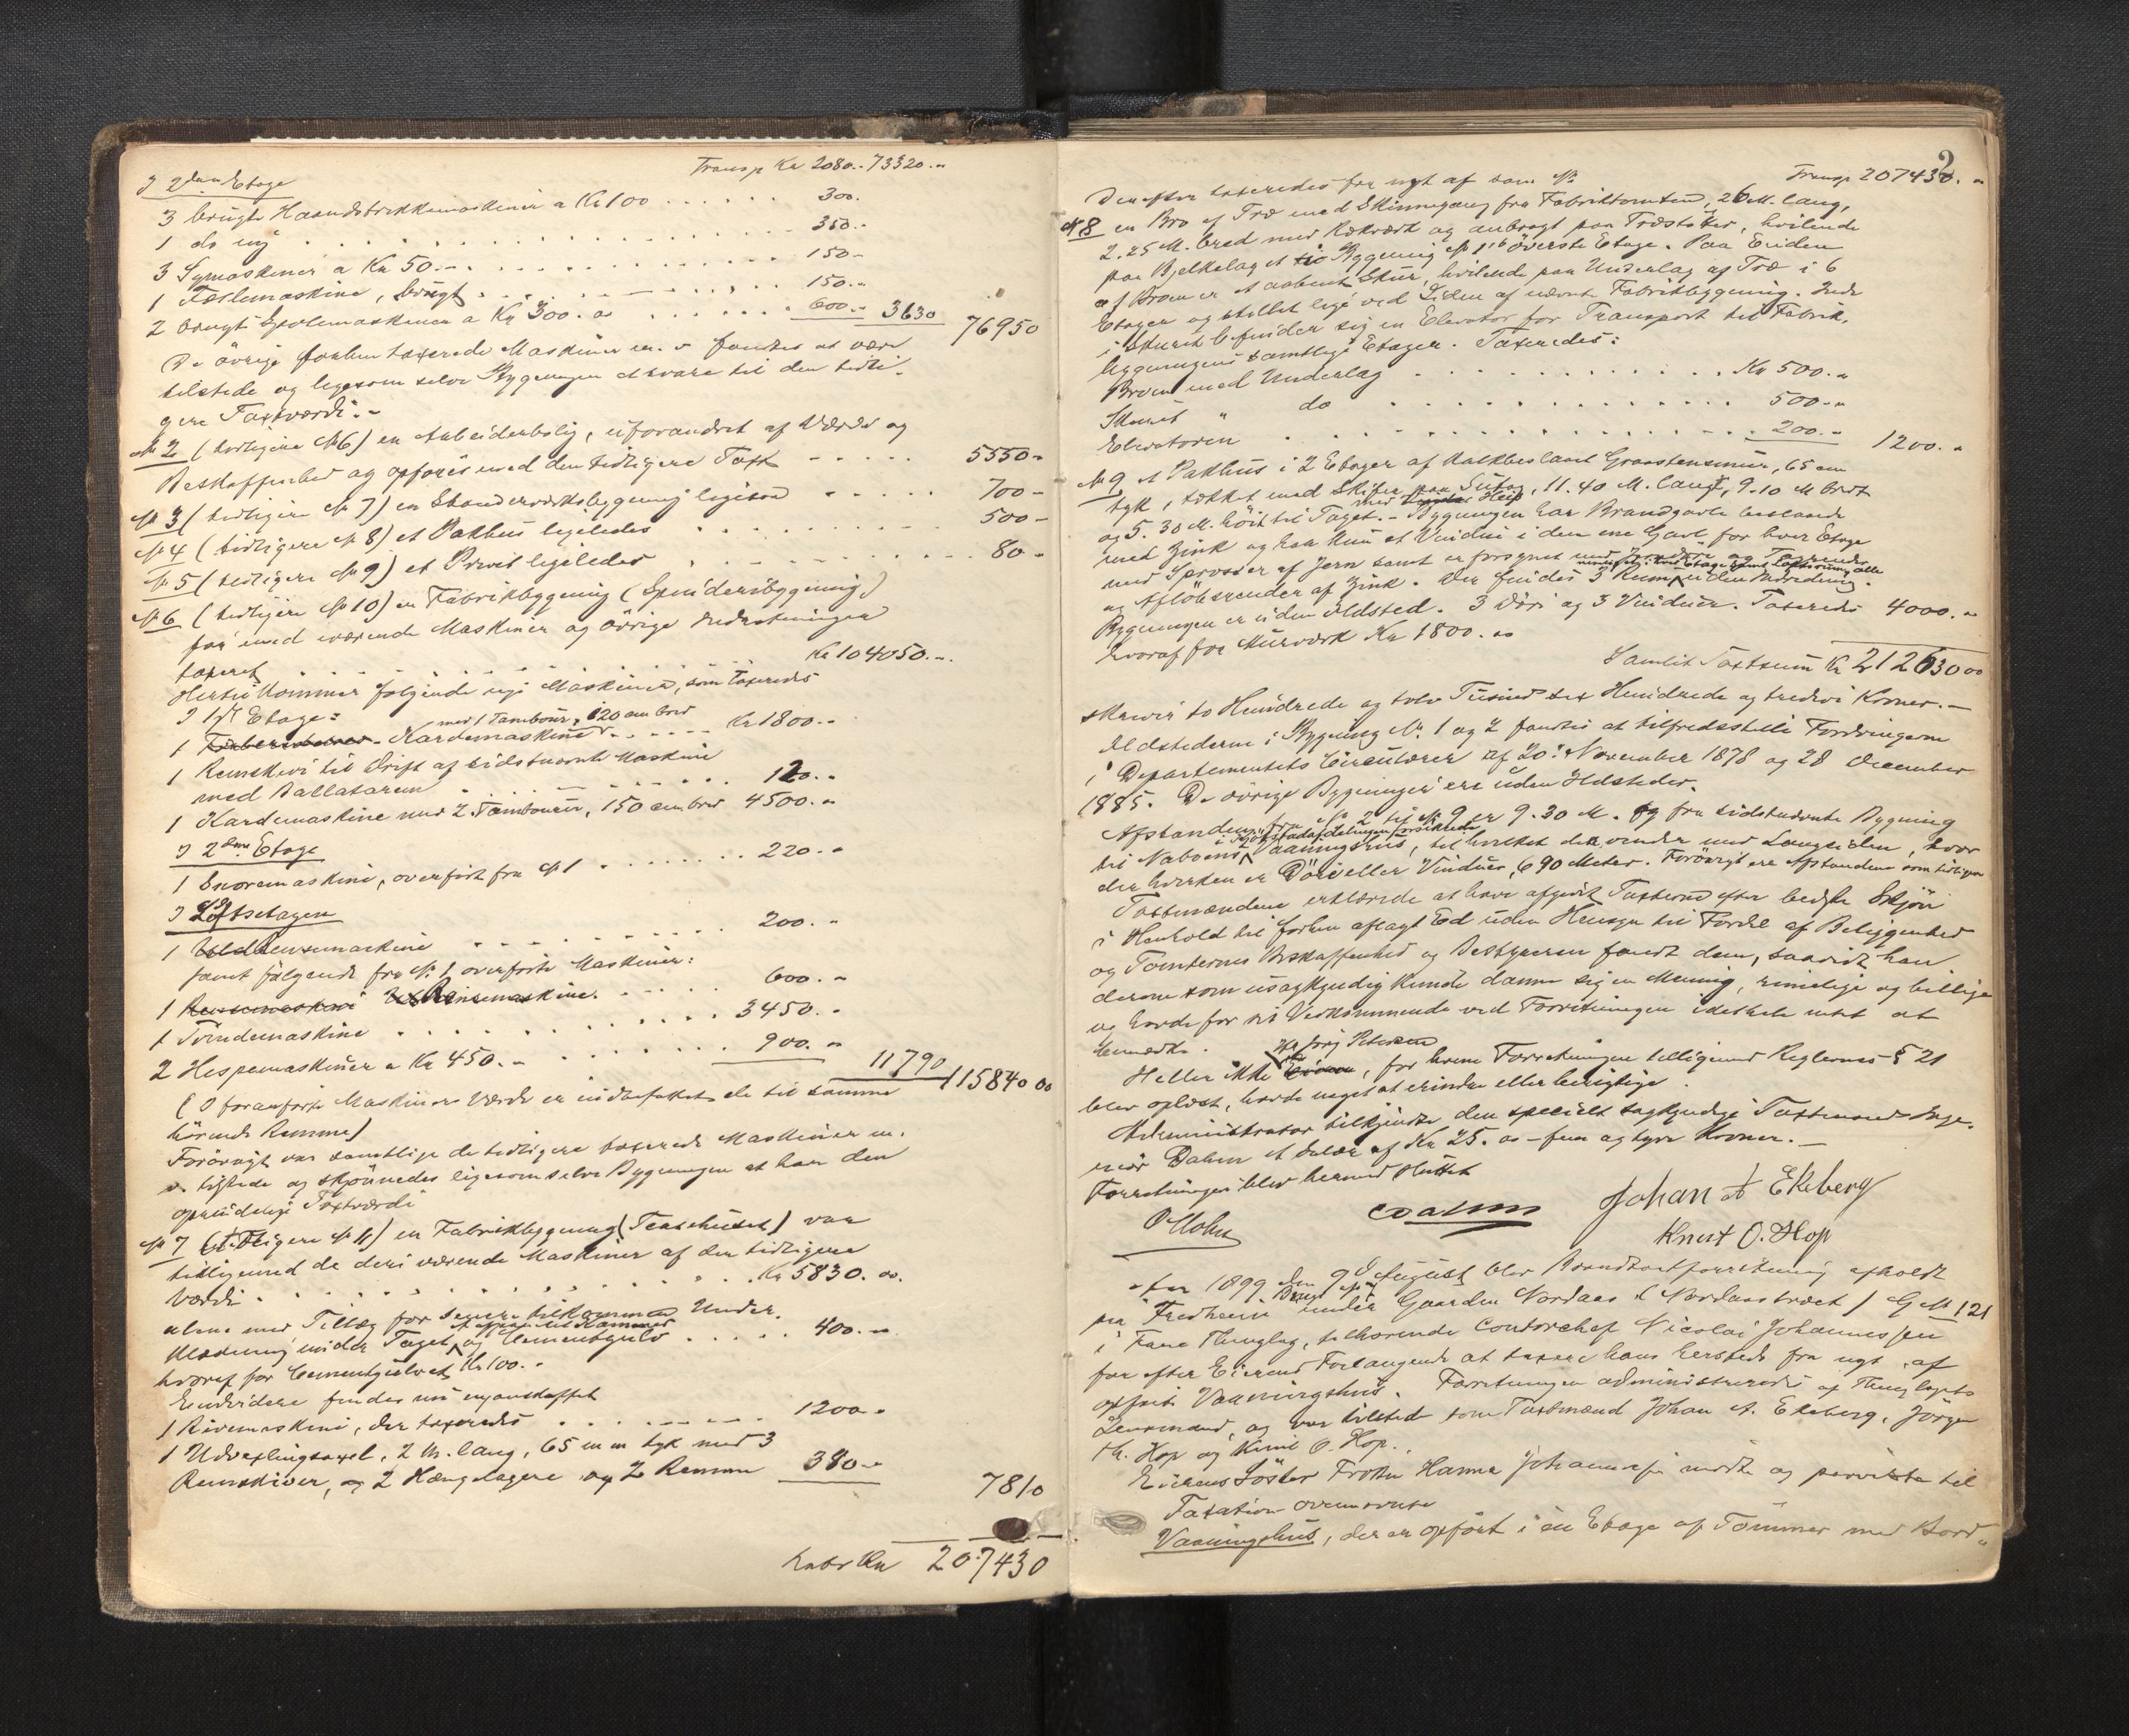 Transp Kr 2080.- 73320.-
I 2den Etage
3 brugte Haandstrikkemaskiner a Kr 100 . . . . . . 300.
1 do ny . . . . . . 350.-
3 Symaskiner a Kr 50.- . . . . . . 150-
1 Fæstemaskine, brugt . . . . . . 150.-
2 brugte Spolemaskiner a Kr 300.00 . . . . . . 600.- 3630 76950
De övrige forhen taxerede Maskiner m.v. fandtes at være
tilstede og ligesom selve Bygningen at svare til den tidli-
gere Taxtværdi.-
No 2 (tidligere No 6) en Arbeiderbolig, uforandret af Værdi og
Beskaffenhed og opføres med den tidligere Taxt . . . . . 5550-
No 3 (tidligere No 7) en Stænderværksbygning ligesaa . . . . . 700-
No 4 (tidligere No 8) et Pakhus ligeledes . . . . . 500-
No 5 (tidligere No 9) et Privet ligeledes . . . . . 80-
No 6 (tidligere No 10) en Fabrikbygning (Spinderibygning)
før med værende Maskiner og övrige Indretninger
taxeret . . . . . Kr 104050.-
Hertil kommer følgende nye Maskiner, som taxeredes
I 1ste Etage:
med 1 Tambour, 120 cm bred
1 Kardemaskine . . . . . Kr 1800.-
1 Remskive til Drift af sidstnævnte Maskine
med Ballatarem . . . . . 120.-
1 Kardemaskine med 2 Tambourer, 150 cm bred 4500.-
I 2den Etage
1 Snoremaskine, overført fra No 1 . . . . . 220.-
I Loftsetagen
1 Uldrensemaskine . . . . . 200.-
samt følgende fra No 1 overførte Maskiner:
1 Rensemaskine . . . . . 600.-
1 Tvindemaskine . . . . . 3450.-
2 Hespemaskiner a Kr 450.- . . . . . 900.- 11790 115840 00
(I foranførte Maskiners Værdi er indbefattet de til samme
hörende Remme)
Forövrigt var samtlige de tidligere taxerede Maskiner m.
v. tilstede og skjønnedes ligesom selve Bygningen at have den
oprindelige Taxtværdi
No 7 (tidligere No 11) en Fabrikbygning (Teasehuset) var
tilligemed de deri værende Maskiner af den tidligere
Værdi . . . . . Kr 5830.00.
alene med Tillæg for senere tilkommen Under-
klædning under Taget og Cementgulv . . . . . 400.-
hvoraf for Cementgulvet Kr 100.-
Endvidere findes nu nyanskaffet
1 Rivemaskine, der taxeredes . . . . . 1200.-
1 Udvexlingsaxel, 2 M. lang, 65 mm tyk med 3
Remskiver, og 2 Hængelagere og 2 Remme 380.- 7810
Latr Kr 207430
2
Transp 207430.-
Derefter taxeredes fra nyt af som No
No 8 en Bro af Træ med Skinnegang fra Fabriktomten, 26 M. lang,
2.25 M. bred med Rækværk og anbragt paa Træstøtter, hvilende
paa Bjelkelag til Bygning No 1's överste Etage. Paa Enden
af Broen er et aabent Skur, hvilende paa Underlag af Træ i 6
Etager og stillet lige ved Siden af nævnte Fabrikbygning. Inde
i Skuret befinder sig en Elevator for Transport til Fabrik-
bygningens samtlige Etager. Taxeredes:
Broen med Underlag . . . . . Kr 500.-
Skuret " do . . . . . 500.-
Elevatoren . . . . . 200.- 1200.-
No 9 et Pakhus i 2 Etager af kalkbeslaaet Graastensmur, 65 cm
tyk, tækket med Skifer paa Sutag, 11.40 M. langt, 9.10 M bredt
og 5.30 M. höit til Taget.- Bygningen har Brandgavle beslaaede
med Zink og har kun et Vindue i den ene Gavl for hver Etage
med Sprosser af Jern samt er forsynet med Jerndöre og Tagrender
og Aflöbsrender af Zink. Der findes 3 Rum uden Indredning.
Bygningen er uden Ildsted. 3 Döre og 3 Vinduer. Taxeredes 4000.-
hvoraf for Murværk Kr 1800.00
Samlet Taxtsum Kr 212630 00
skriver to Hundrede og tolv Tusind sex Hundrede og tredive Kroner.-
Ildstederne i Bygning No 1 og 2 fandtes at tilfredsstille Fordringerne
i Departementets Circulærer af 20. November 1878 og 28 December
1885. De övrige Bygninger ere uden Ildsteder.
Afstanden fra No 2 til No 9 er 9.30 M. og fra sidstnævnte Bygning
til Naboens Vaaningshus, til hvilket det vender med Langsiden, hvor
der hverken er Döre eller Vinduer, 6.90 Meter. Forövrigt ere Afstandene som tidligere
Taxtmændene erklærede at have afgivet Taxterne efter bedste Skjön
i Henhold til forhen aflagt Ed uden Hensyn til Fordel af Beliggenhed
og Tomternes Beskaffenhed og Bestyreren fandt dem, saavidt han
derom som usagkyndig kunde danne sig en Mening, rimelige og billige
og havde for sit Vedkommende ved Forretningen idethele intet at
bemærke.
Heller ikke , for hvem Forretningen tilligemed Reglernes § 21
blev oplæst, havde noget at erindre eller berigtige.
Administrator tilkjendte den specielt sagkyndige Taxtmand Inge-
niör Dahm et Salær af Kr 25.00 - fem og tyve Kroner.-
Forretningen blev hermed sluttet
Johan A Ekeberg
Knut O. Hop
Aar 1899 den 9de August blev Brandtaxtforretning afholdt
paa Fredheim under Gaarden Nordaas (Nordaastræet) G No 121
i Fane Thinglag, tilhørende Contorchef Nicolai Johannessen
for efter Eierens Forlangende at taxere hans hersteds fra nyt af
opført Vaaningshus. Forretningen administreredes af Thinglagets
Lensmand, og var tilstede som Taxtmænd Johan A. Ekeberg, Jörgen
H. Hop og Knut O. Hop.
Eierens Söster Frøken Hanna Johannessen mødte og paaviste til
Taxation ovennævnte
Vaaningshus, der er opført i en Etage af Tömmer med Bord-